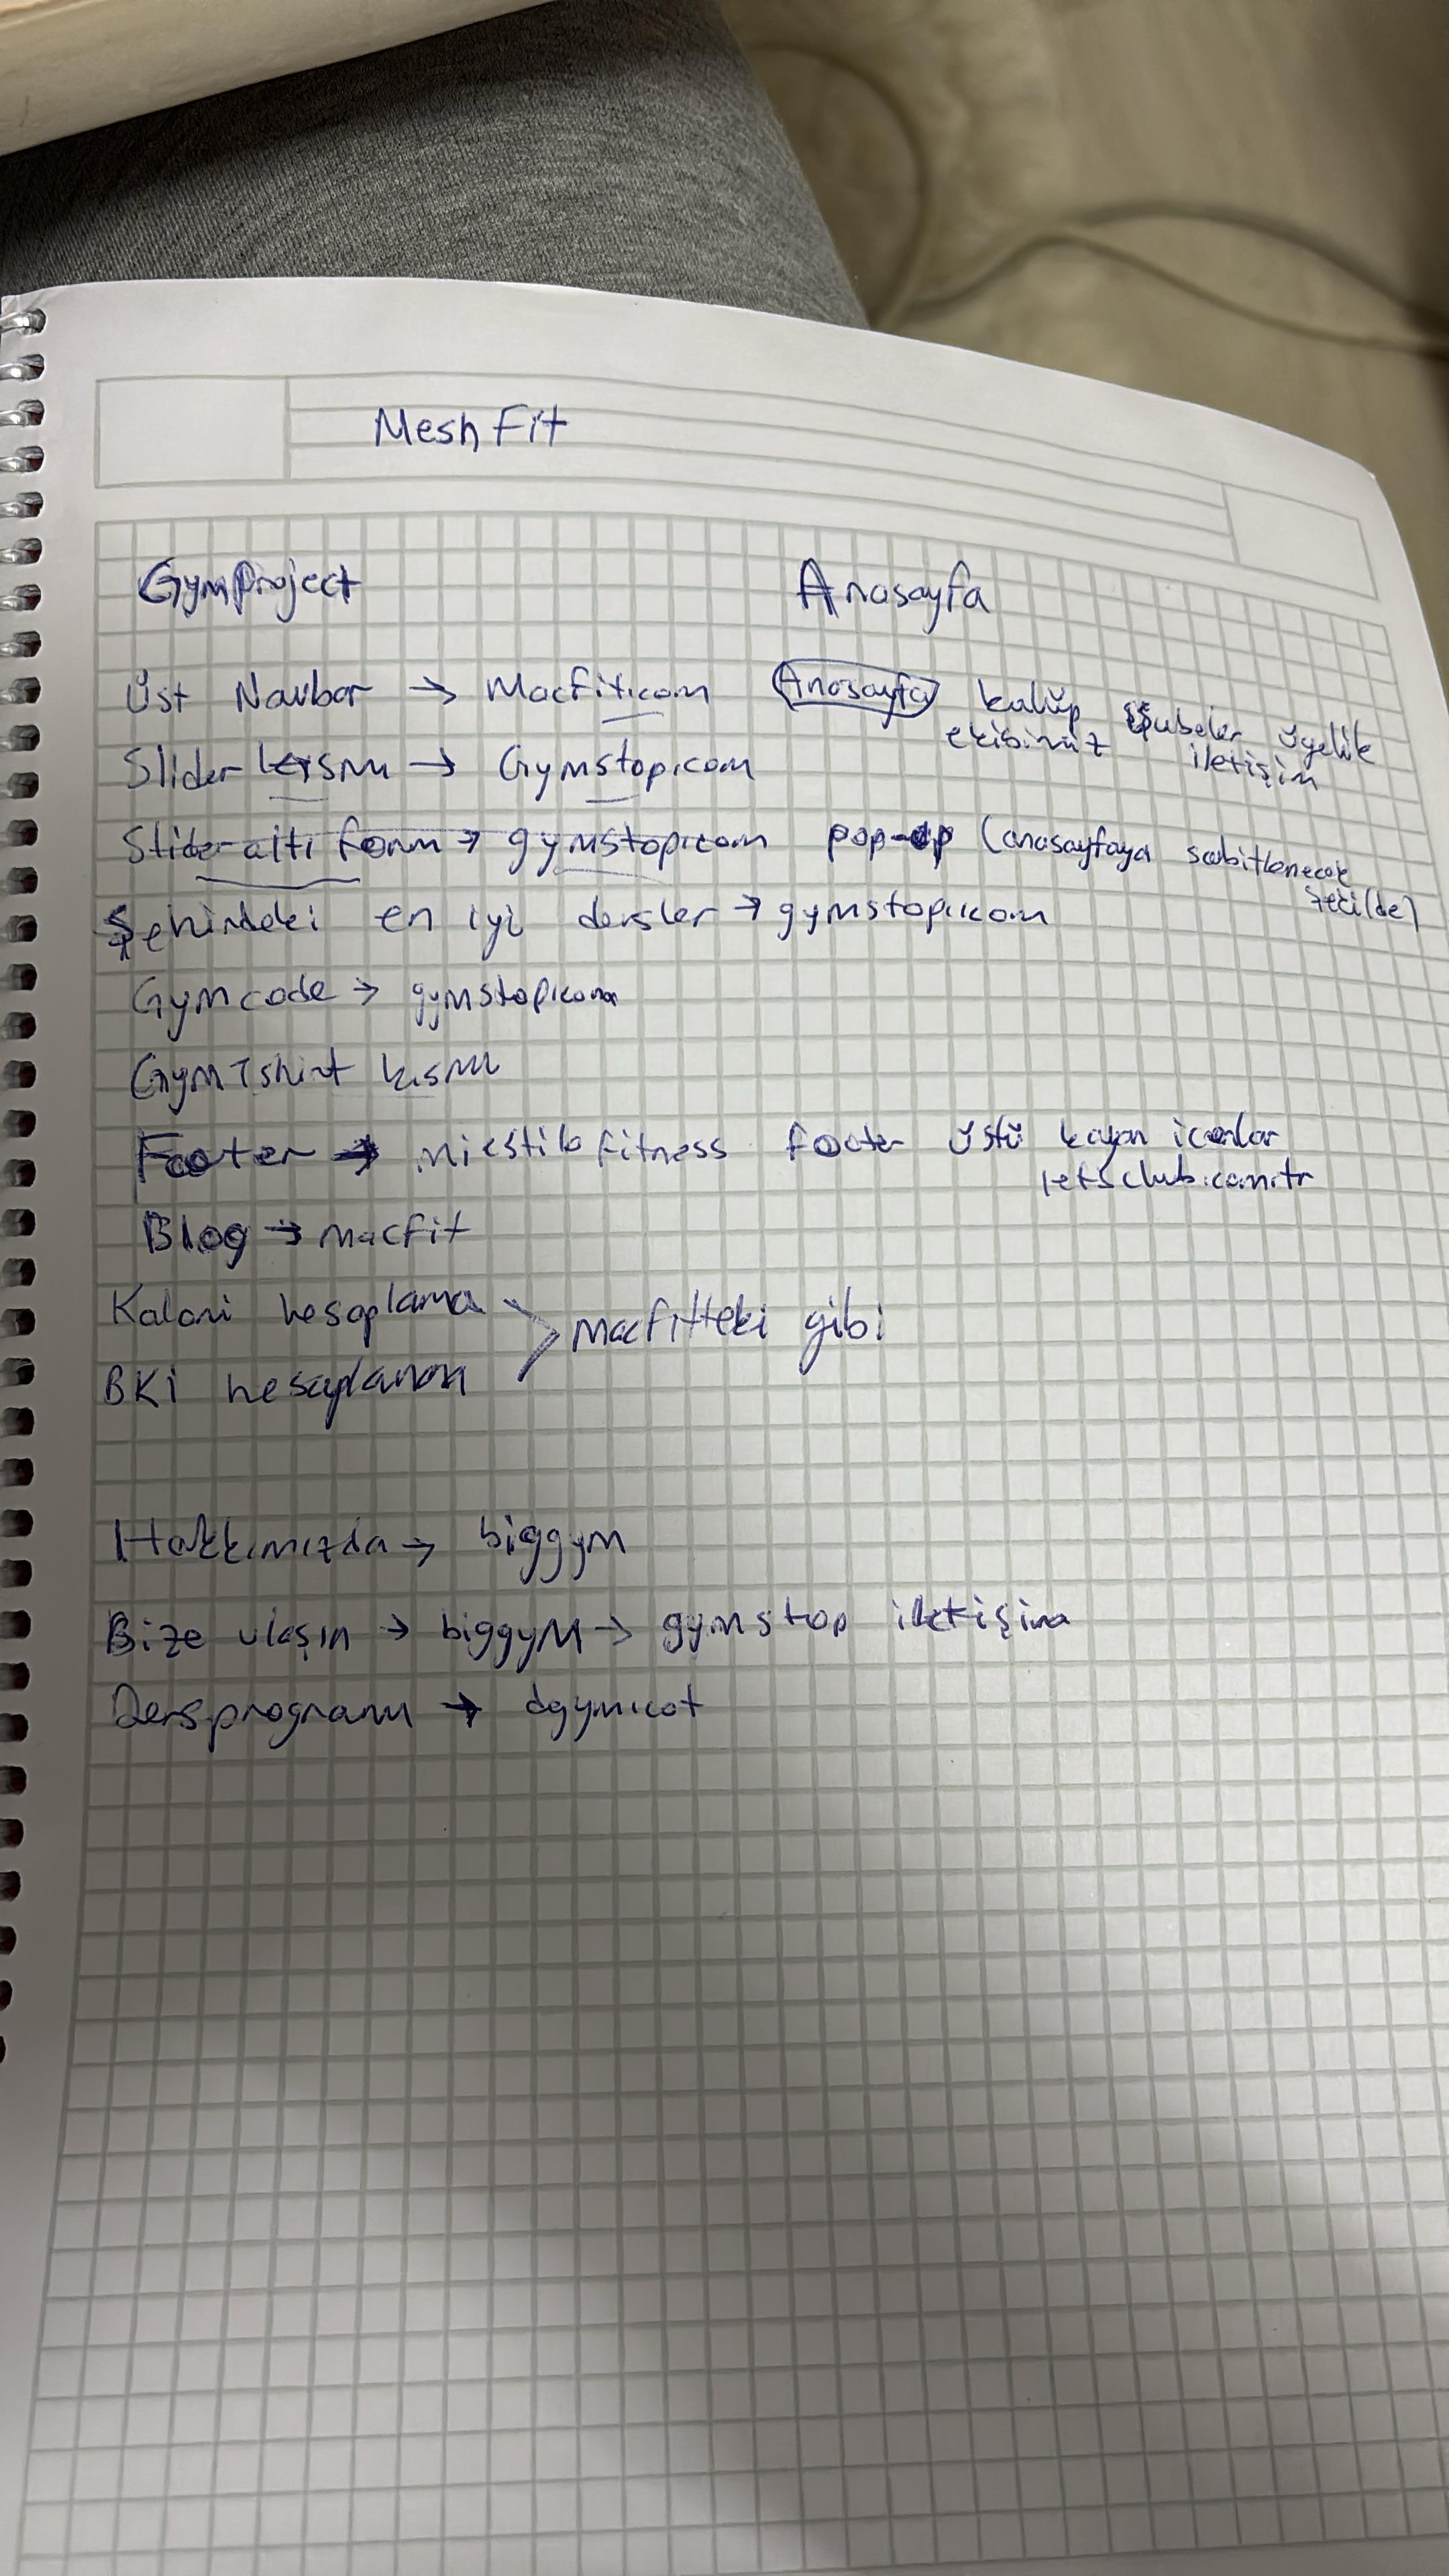 Mesh Fit
GymProject Anasayfa
Üst Navbar → Macfit.com Anasayfa kulüp Şubeler üyelik
ekibimiz iletişim
Slider kısmı → Gymstop.com
Slider altı form → gymstop.com pop-up (anasayfaya sabitlenecek
şekilde)
Şehirdeki en iyi dersler → gymstop.com
Gymcode → gymstop.com
GymTshirt kısmı
Footer → fitness footer üstü kayan iconlar
letsclub.com.tr
Blog → macfit
Kalori hesaplama
macfitteki gibi
BKİ hesaplama
Hakkımızda → biggym
Bize ulaşın → biggym → gymstop iletişim
Ders programı →